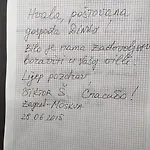 Hvala, poštovana
gospođo Dinko!
Bilo je nama zadovoljstvo
boraviti u Vašoj vili!
Lijep pozdrav
Viktor Š. Спасибо!
Zagreb - Moskva
25 06 2015